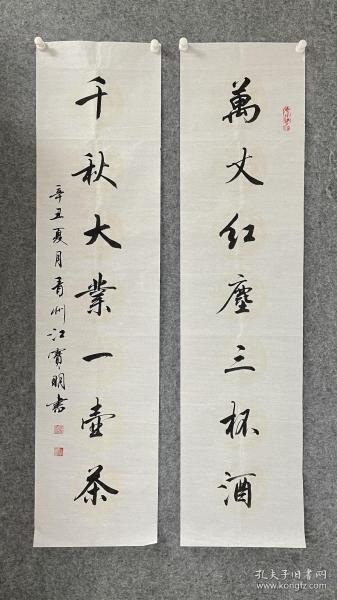 萬丈红塵三杯酒
千秋大業一壺茶
辛丑夏月青州江寶明書
孔夫子旧书网
www.kongfz.com